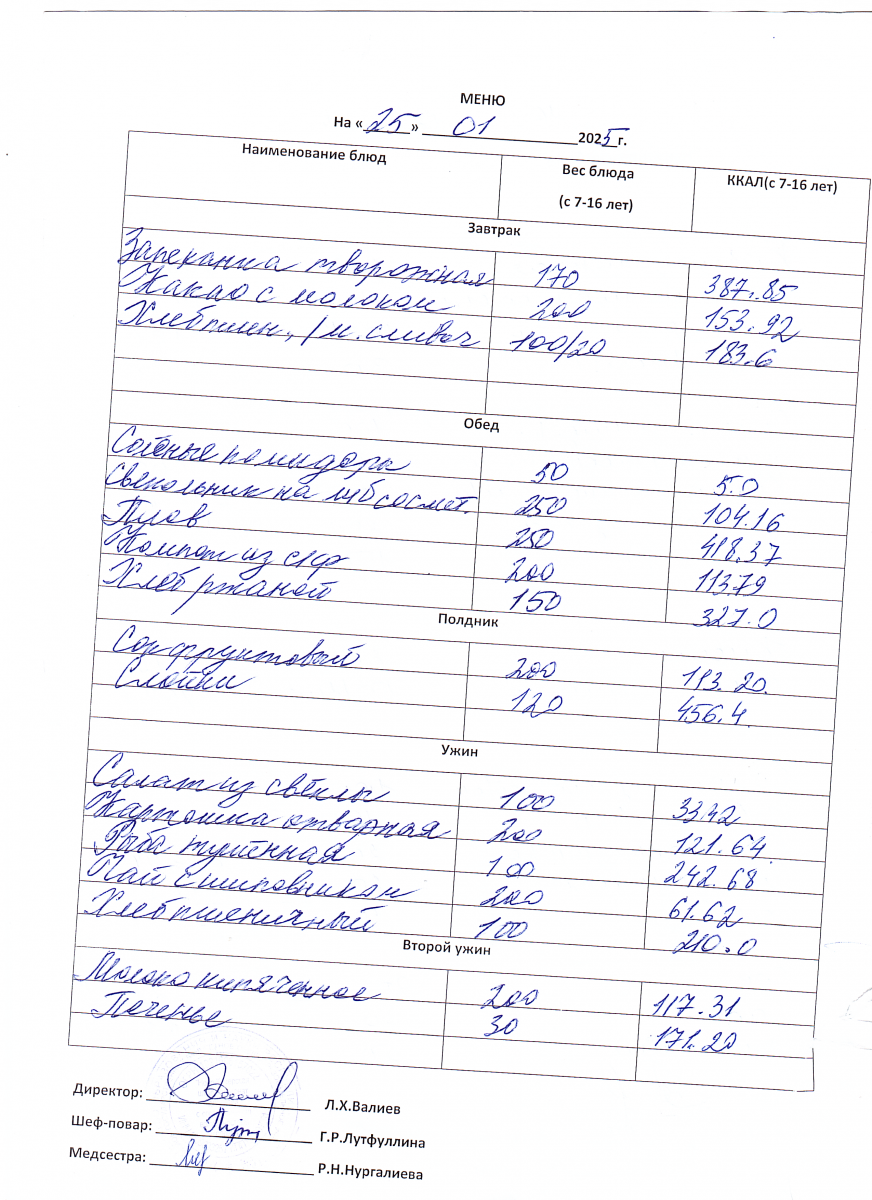 МЕНЮ
На «25» 01 2025 г.
Наименование блюд Вес блюда (с 7-16 лет) ККАЛ(с 7-16 лет)
Завтрак
Запеканка творожная 170 387.85
Какао с молоком 200 153.92
Хлеб пшен., /м. сливоч 100/20 183.6
Обед
Солёные помидоры 50 5.0
Свекольник на м/б со смет. 250 104.16
Плов 250 418.37
Компот из с/ф 200 113.79
Хлеб ржаной 150 327.0
Полдник
Сок фруктовый 200 113.20
Слойки 120 456.4
Ужин
Салат из свёклы 100 33.42
Картошка отварная 200 121.64
Рыба тушенная 100 242.68
Чай с шиповником 200 61.62
Хлеб пшеничный 100 210.0
Второй ужин
Молоко кипяченное 200 117.31
Печенье 30 171.20
Директор: Л.Х.Валиев
Шеф-повар: Г.Р.Лутфуллина
Медсестра: Р.Н.Нургалиева